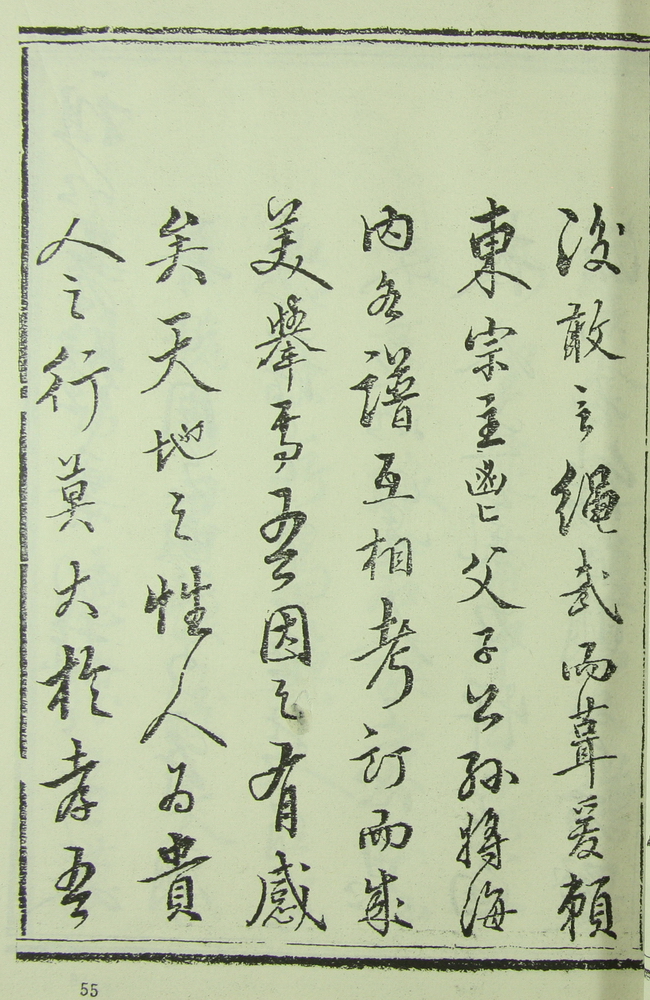 後敢言繩武而葺爰賴
東宗主鬯父子公孫將海
內各譜互相考訂而成
美舉焉吾因之有感
矣天地之性人為貴
人之行莫大於孝吾
55